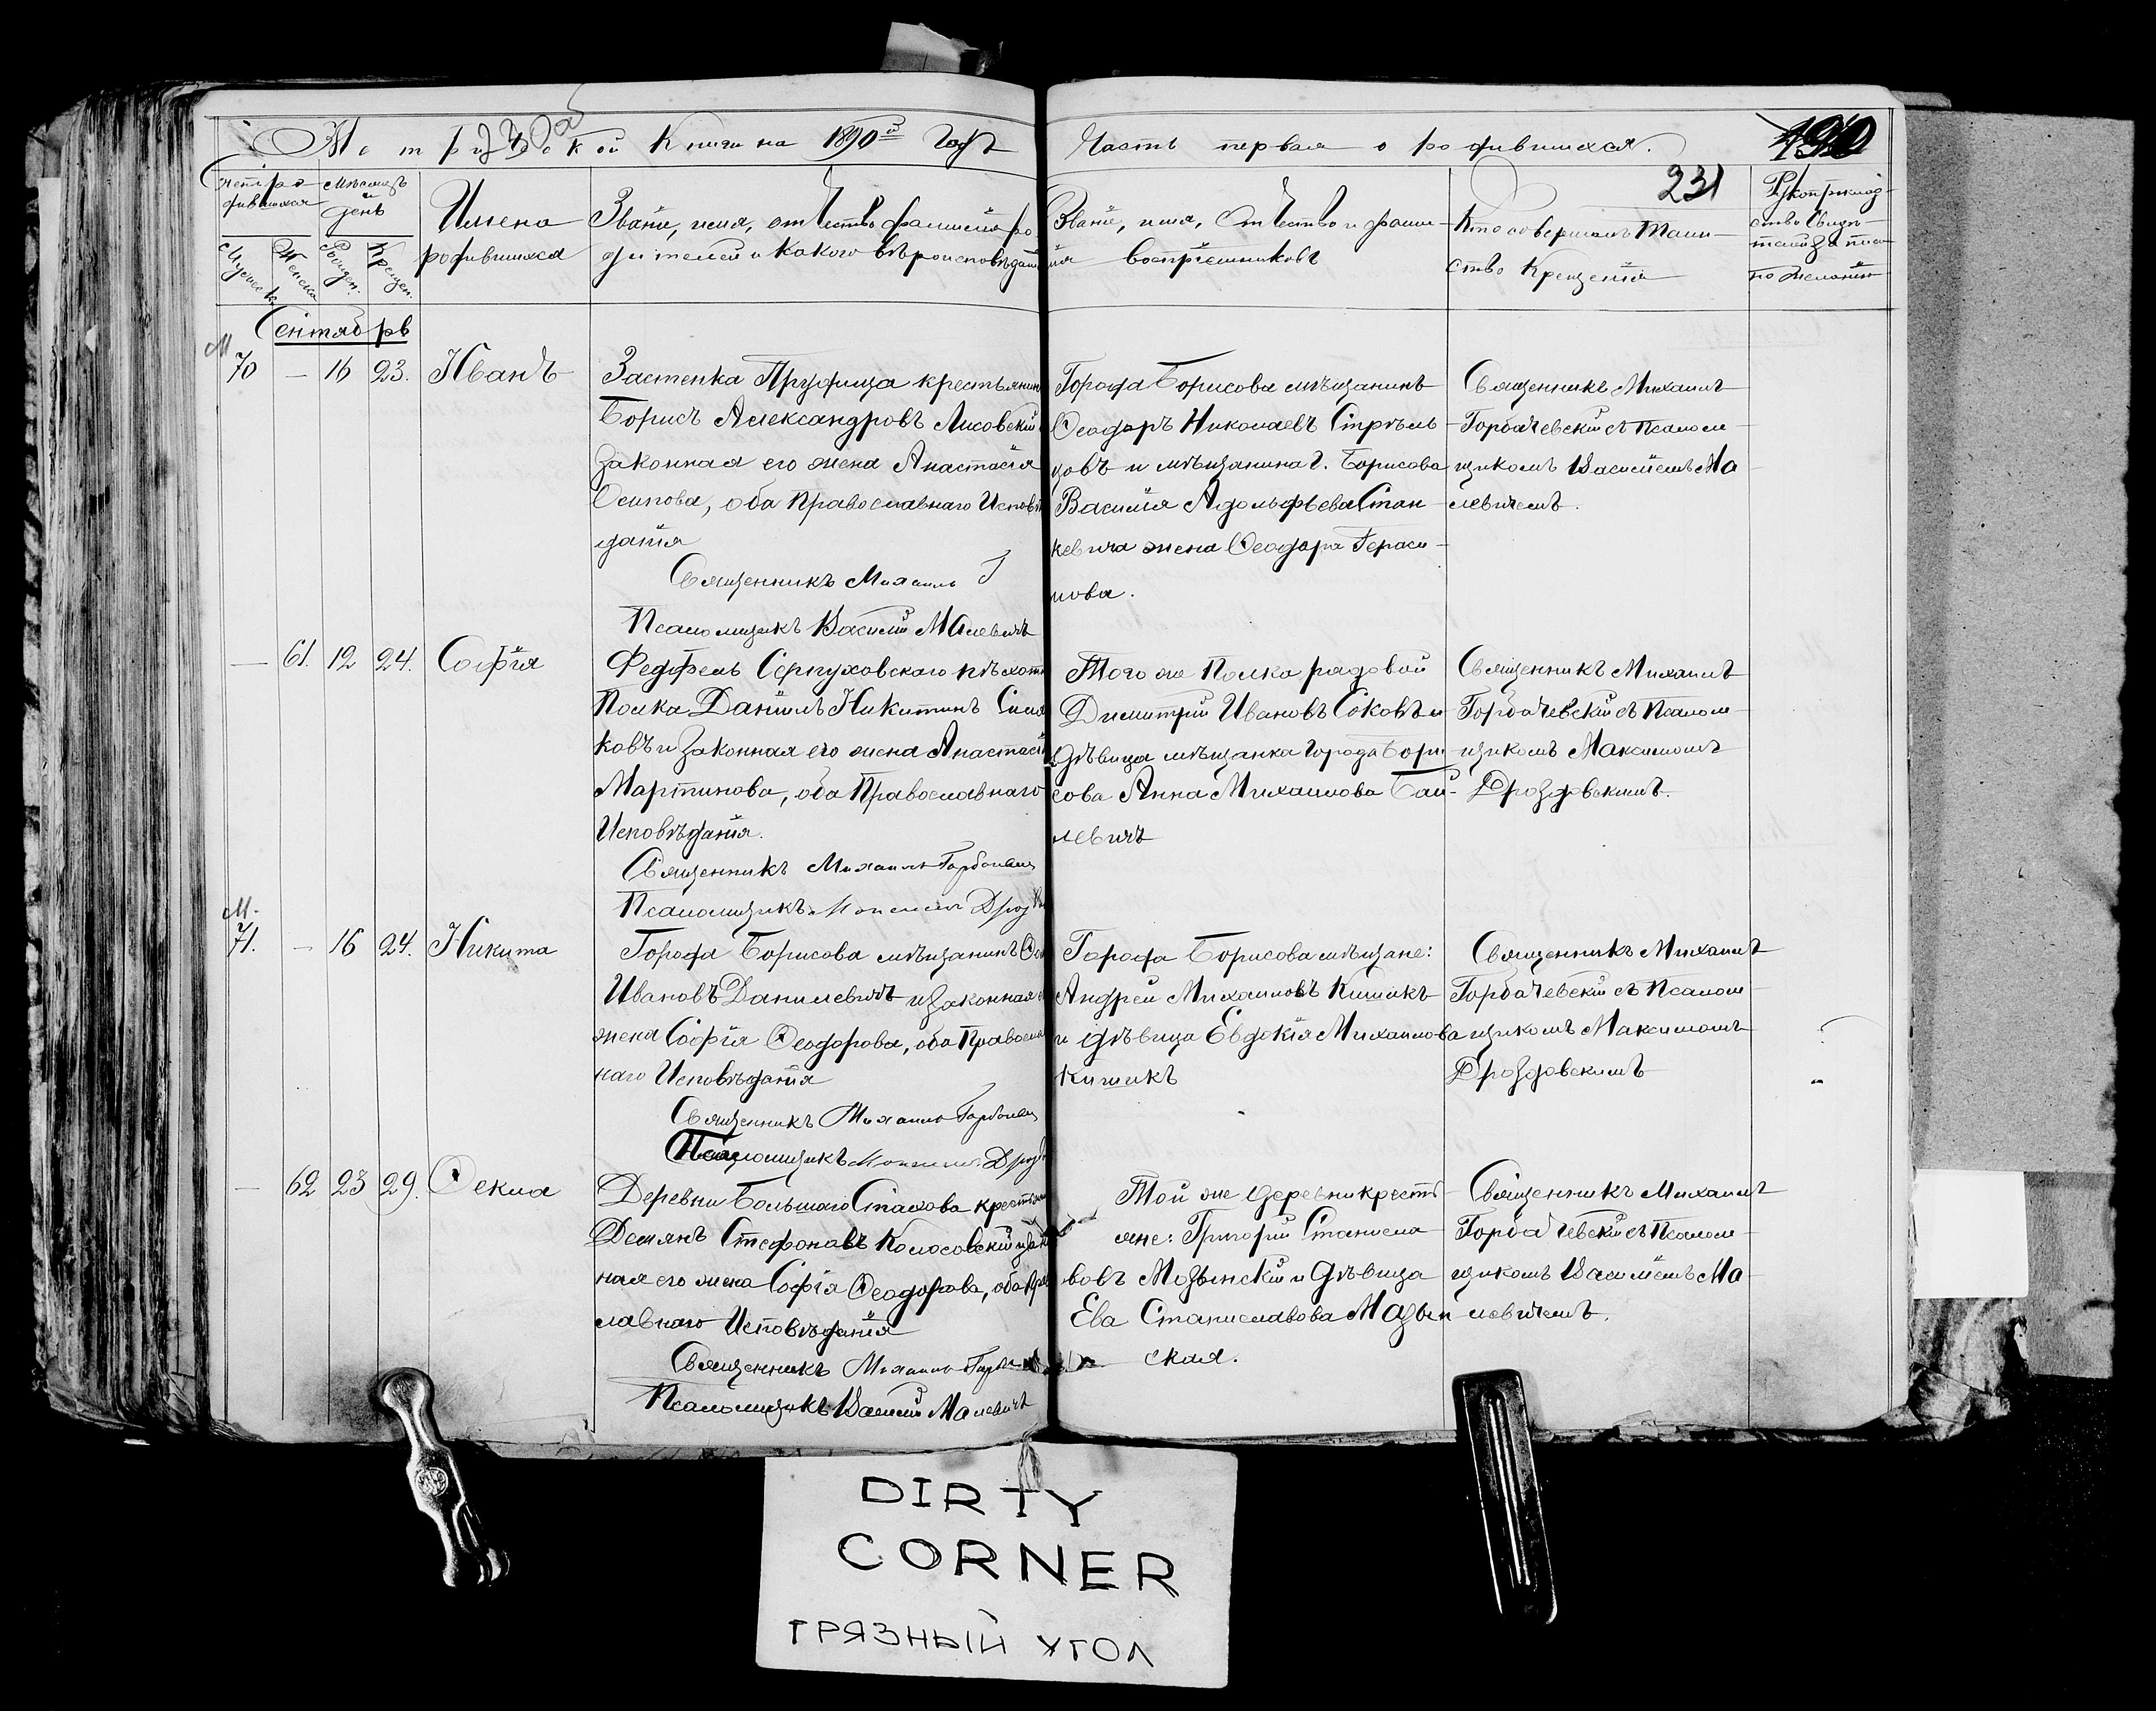 Метрической Книги на 1890й Годъ
Часть первая о родившихся.
190
231
Счетъ ро-
дившихся
Мѣсяцъ
и
день
Мужеск.
Женска
Рожден.
Крещен.
Имена
родившихся
Званіе, имя, отчество фамилія ро
дителей и какого вѣроисповѣданія
Званіе, имя, Отчество и фами-
лія воспріемниковъ
Кто совершалъ Таин-
ство Крещенія
Рукоприклад-
ство свидѣ-
телей записи
по желанію
Сентябрь
М
70 — 16 23. Иванъ
Застенка Прудища крестьянинъ
Борисъ Александровъ Лисовскій
законная его жена Анастасія
Осипова, оба Православнаго Исповѣ
данія
Священникъ Михаилъ Г
Псаломщикъ Василій Малевичъ
Города Борисова мѣщанинъ
Ѳеодоръ Николаевъ Стрѣль
цовъ и мѣщанина г. Борисова
Василія Адольфьева Стан-
кевича жена Ѳеодора Гераси-
мова.
Священникъ Михаилъ
Горбачевскій съ Псалом-
щикомъ Василіемъ Ма
левичемъ.
— 61. 12 24. Софія
Федфель Серпуховскаго пѣхотн
Полка Даніилъ Никитинъ
ковъ и законная его жена Анастасія
Мартинова, оба Православнаго
Исповѣданія.
Священникъ Михаилъ Горбачевс
Псаломщикъ Максимъ Дрозд
Того же Полка рядовой
Димитрій Ивановъ Соковъ и
дѣвица мѣщанка города Бори-
сова Анна Михаилова Бай-
левичъ
Священникъ Михаилъ
Горбачевскій съ Псалом-
щикомъ Максимомъ
Дроздовскимъ.
М.
71. — 16 24. Никита
Города Борисова мѣщанинъ
Ивановъ Данилевичъ и законная
жена Софія Ѳеодорова, оба Правосла
наго Исповѣданія
Священникъ Михаилъ Горбачев
Псаломщикъ Максимъ Дрозд
Города Борисова мѣщане:
Андрей Михаиловъ Кишикъ
и дѣвица Евдокія Михаилова
Кишикъ
Священникъ Михаилъ
Горбачевскій съ Псалом-
щикомъ Максимомъ
Дроздовскимъ
— 62 23 29. Ѳекла
Деревни Большаго Стахова крестьян
Демянъ Стефановъ Колосовскій и зак
ная его жена Софія Ѳеодорова, оба Прав
лавнаго Исповѣданія
Священникъ Михаилъ Горбач
Псаломщикъ Василій Малевичъ
Той же деревни крестья-
не: Григорій Станисла
вовъ Мозынскій и дѣвица
Ева Станиславова Мазын
ская.
Священникъ Михаилъ
Горбачевскій съ Псалом-
щикомъ Василіемъ Ма-
левичемъ.
DIRTY
CORNER
ГРЯЗНЫЙ УГОЛ